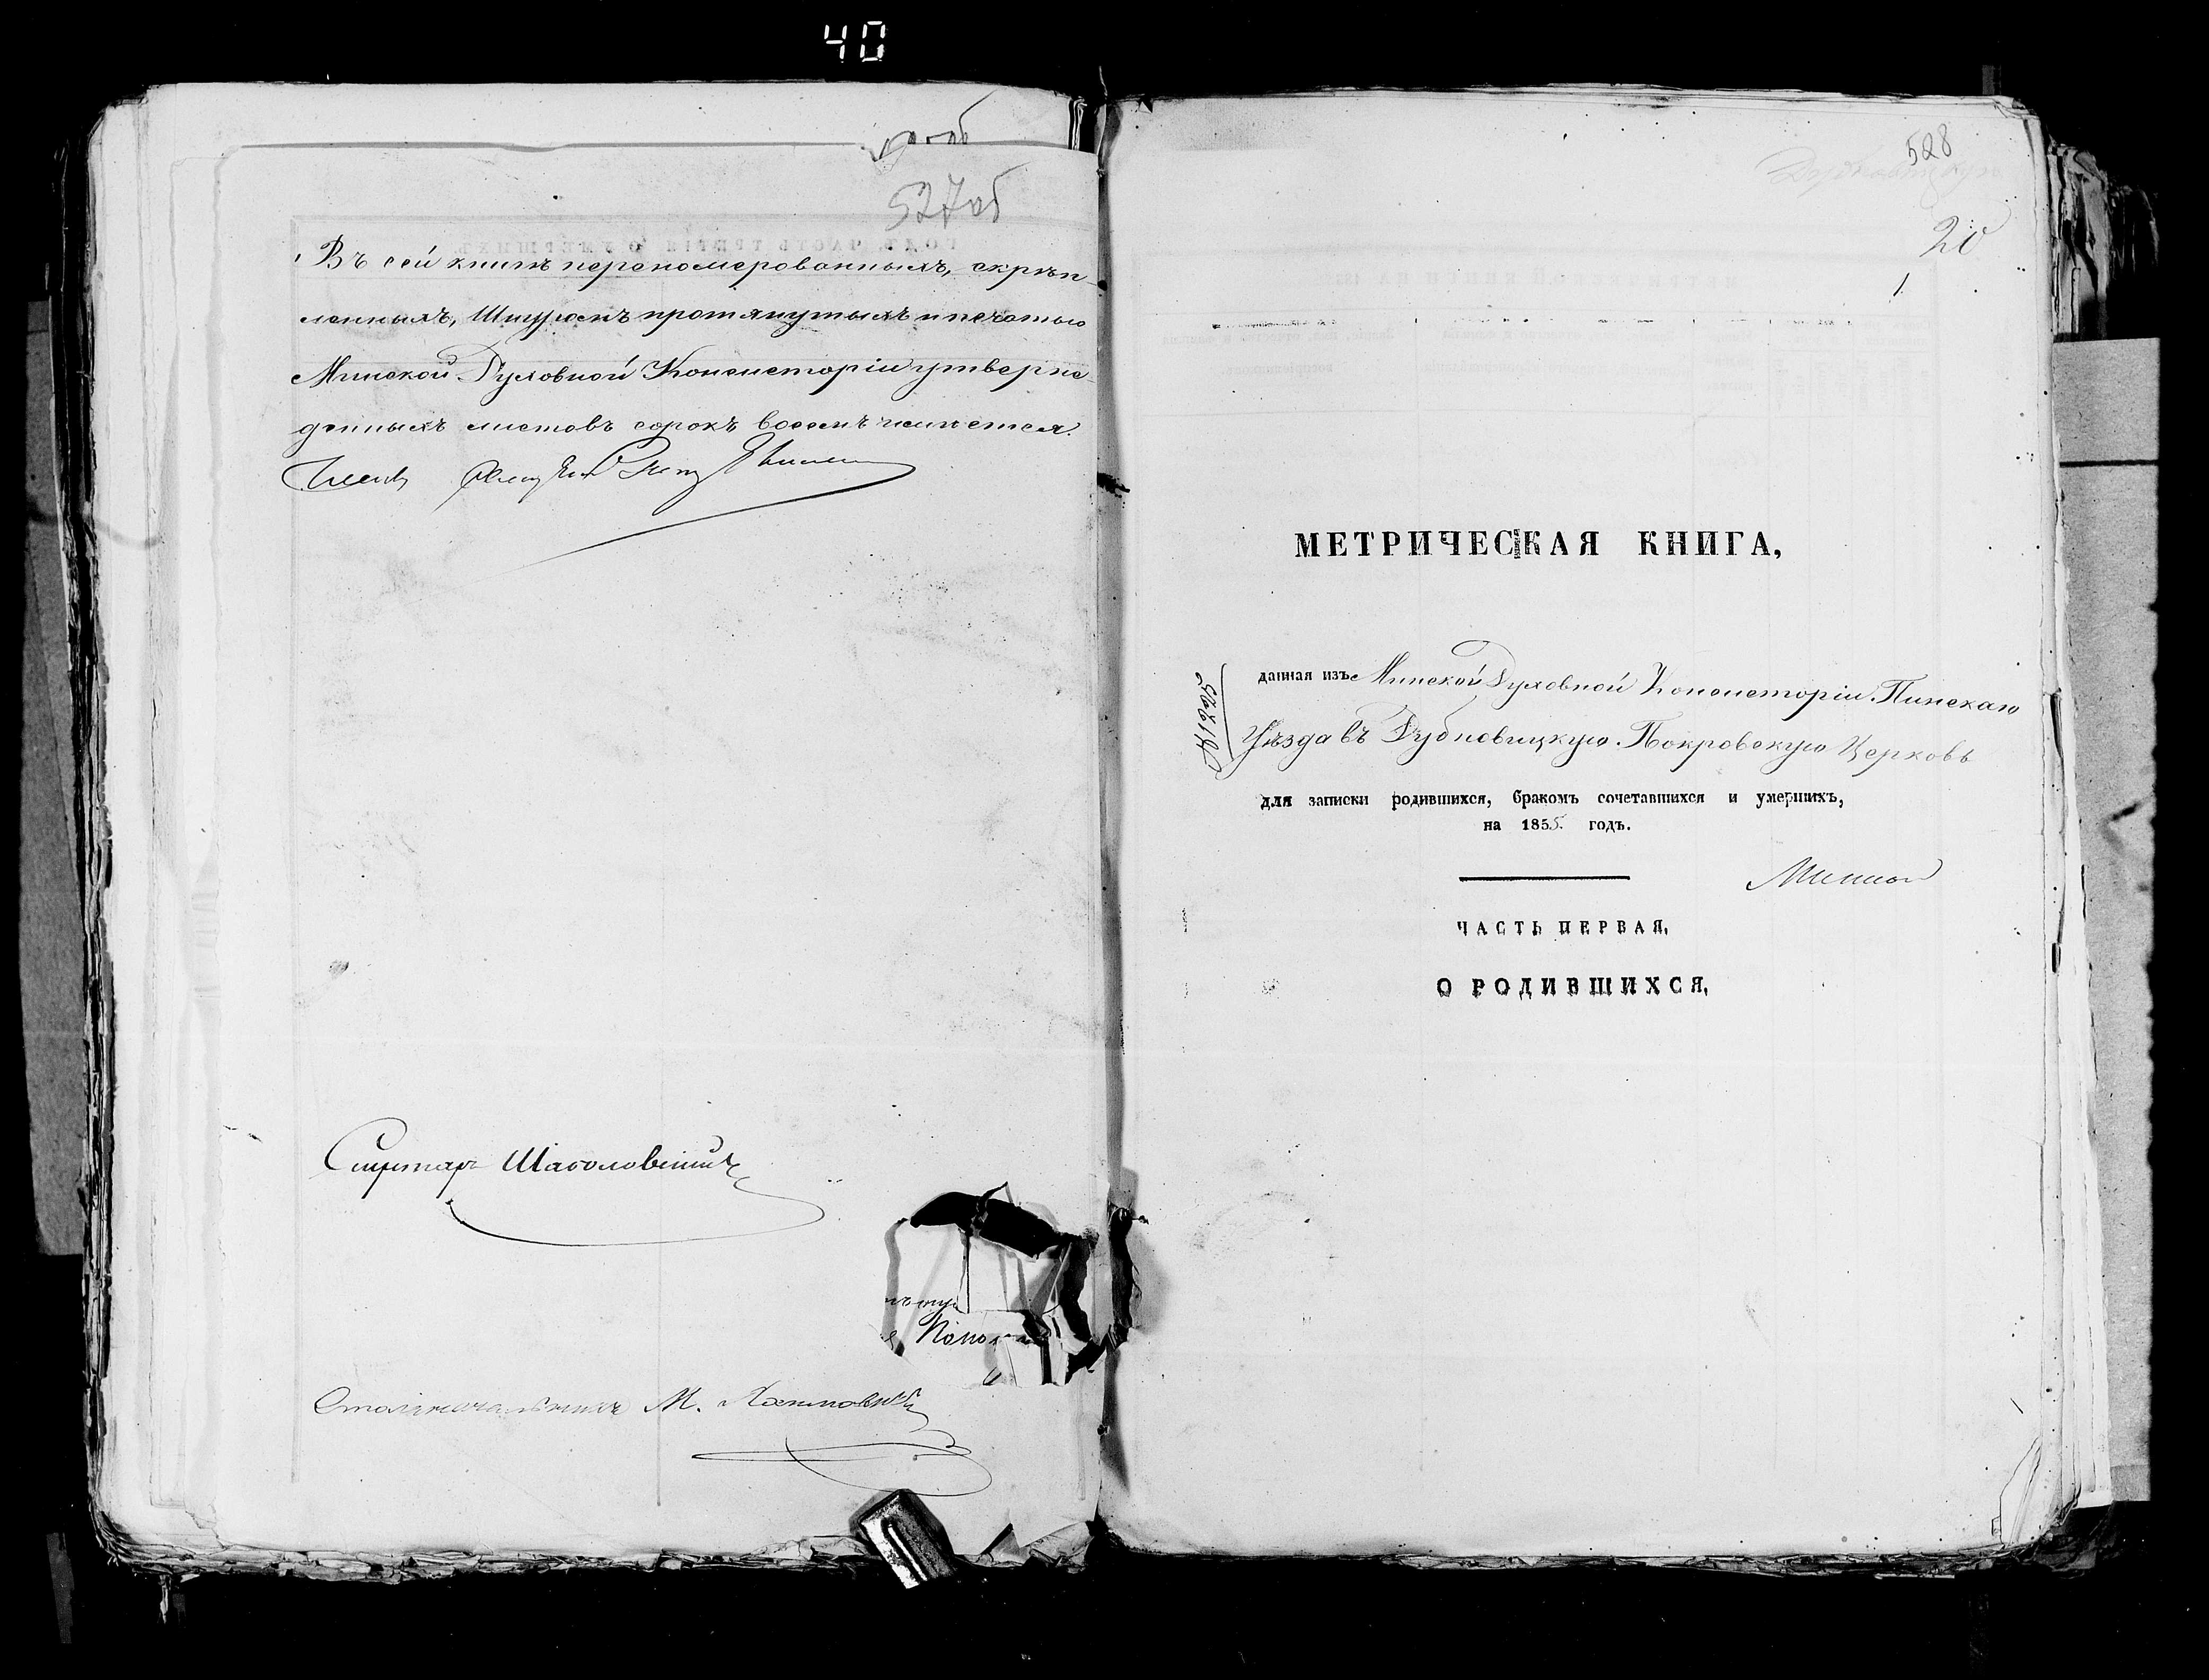 40
527об
Въ сей книгѣ переномерованныхъ, скрѣп-
ленныхъ, Шнуромъ протянутыхъ и печатью
Минской Духовной Консисторіи утверж-
денныхъ листовъ сорокъ восемь числится.
Членъ
Секретарь
Столоначальникъ М.
528
20
1
МЕТРИЧЕСКАЯ КНИГА,
данная изъ Минской Духовной Консисторіи Пинскаго
Уѣзда въ Дубновицкую Покровскую Церковь
для записки родившихся, бракомъ сочетавшихся и умершихъ,
на 1855 годъ.
ЧАСТЬ ПЕРВАЯ,
О РОДИВШИХСЯ,